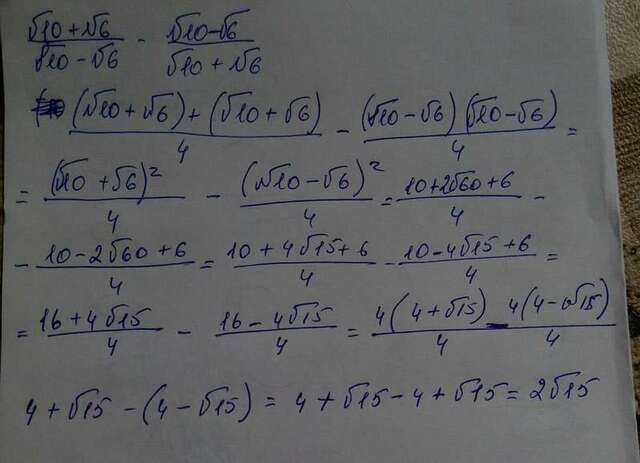 (√10+√6)/(√10−√6) − (√10−√6)/(√10+√6)
((√10+√6)+(√10+√6))/4 − ((√10−√6)(√10−√6))/4 =
= (√10+√6)²/4 − (√10−√6)²/4 = (10+2√60+6)/4 −
− (10−2√60+6)/4 = (10+4√15+6)/4 − (10−4√15+6)/4 =
= (16+4√15)/4 − (16−4√15)/4 = 4(4+√15)/4 − 4(4−√15)/4
4+√15 −(4−√15) = 4+√15−4+√15 = 2√15